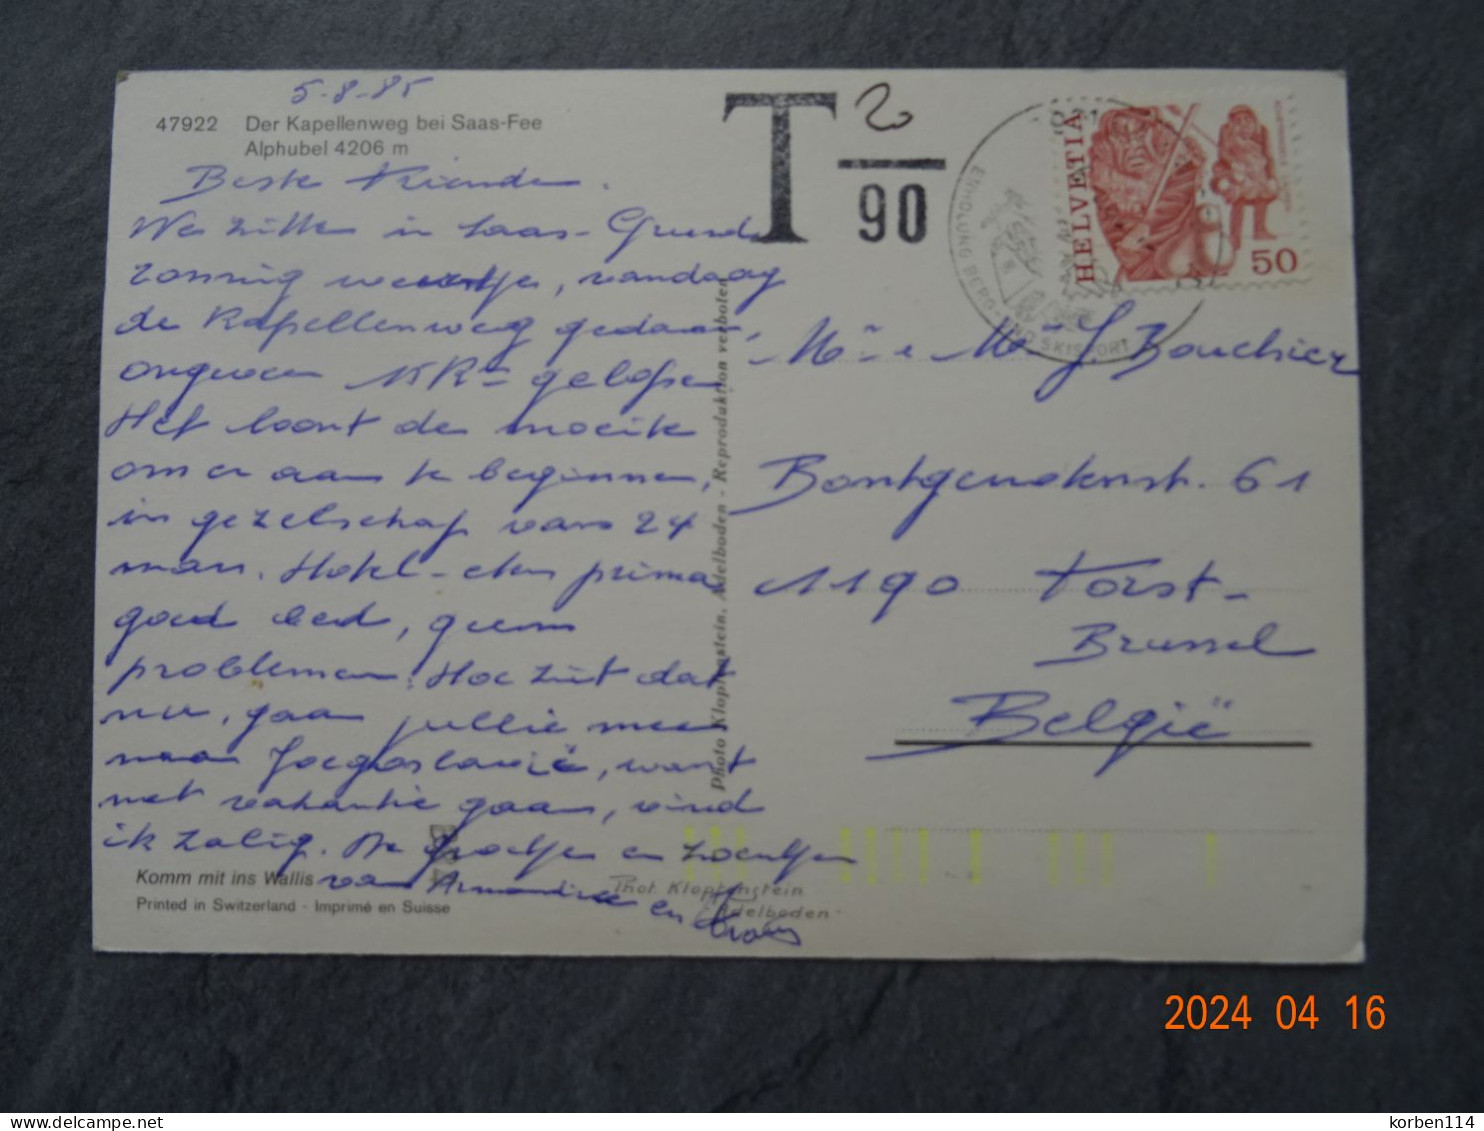 5-8-85
47922 Der Kapellenweg bei Saas-Fee
Alphubel 4206 m
Beste Vrienden.
We zitten in Saas-Grund
zonnig weertje, vandaag
de Kapellenweg gedaan,
ongeveer
gelopen
Het loont de moeite
om er aan te beginnen,
in gezelschap van 24
man. Hotel-eten prima
goed bed, geen
problemen. Hoe zit dat
nu, gaan jullie mee
naar Joegoslavië, want
met vakantie gaan, vind
ik zalig. De groetjes en zoentjes
van
en
Komm mit ins Wallis
Printed in Switzerland - Imprimé en Suisse
Photo Klopfenstein, Adelboden - Reproduktion verboten
Phot Klopfenstein
Adelboden
T 2
90
HELVETIA
50
BERG- UND SKISPORT
Mr e Me J Bouchier
61
1190 Vorst-
Brussel
België
2024 04 16
korben114